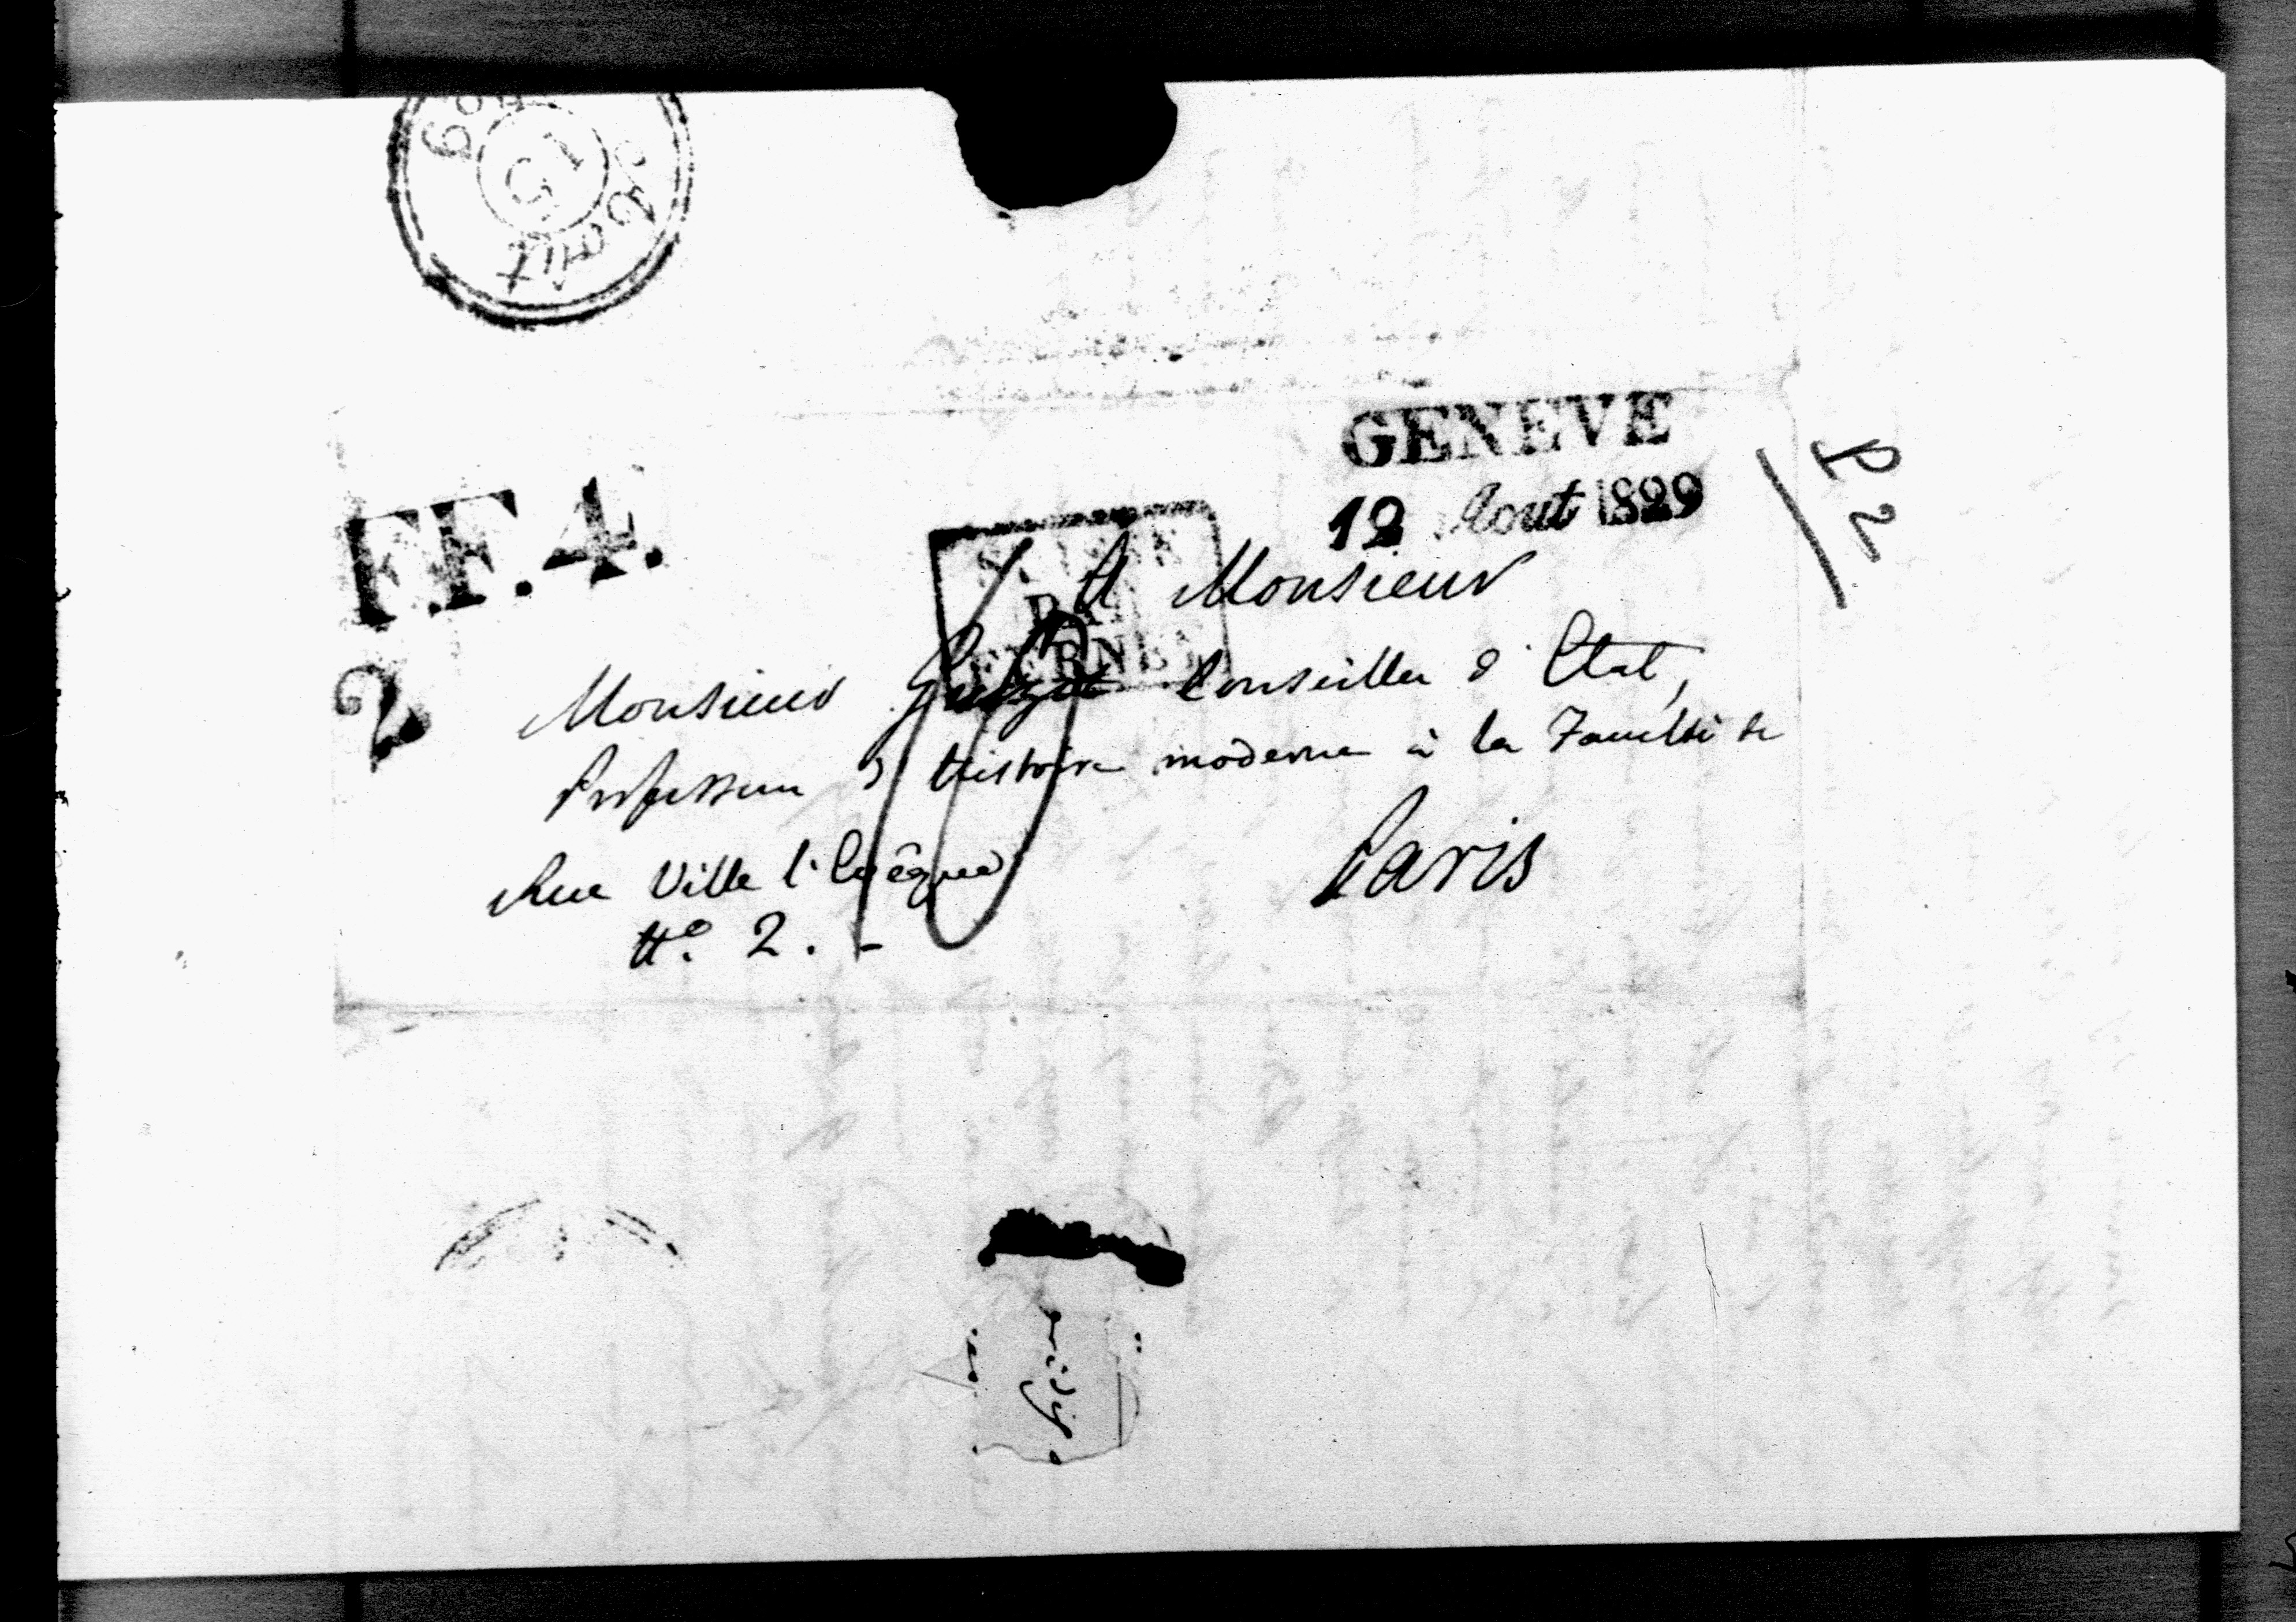 15
GENEVE
12 Aout 1829
F.F.4.
P2
SUISSE
PAR
FERNEY
2
10
A Monsieur
Monsieur Guizot Conseiller d'Etat,
Professeur d'histoire moderne à la Faculté de
Paris
Rue Ville l'Evêque
No. 2. -